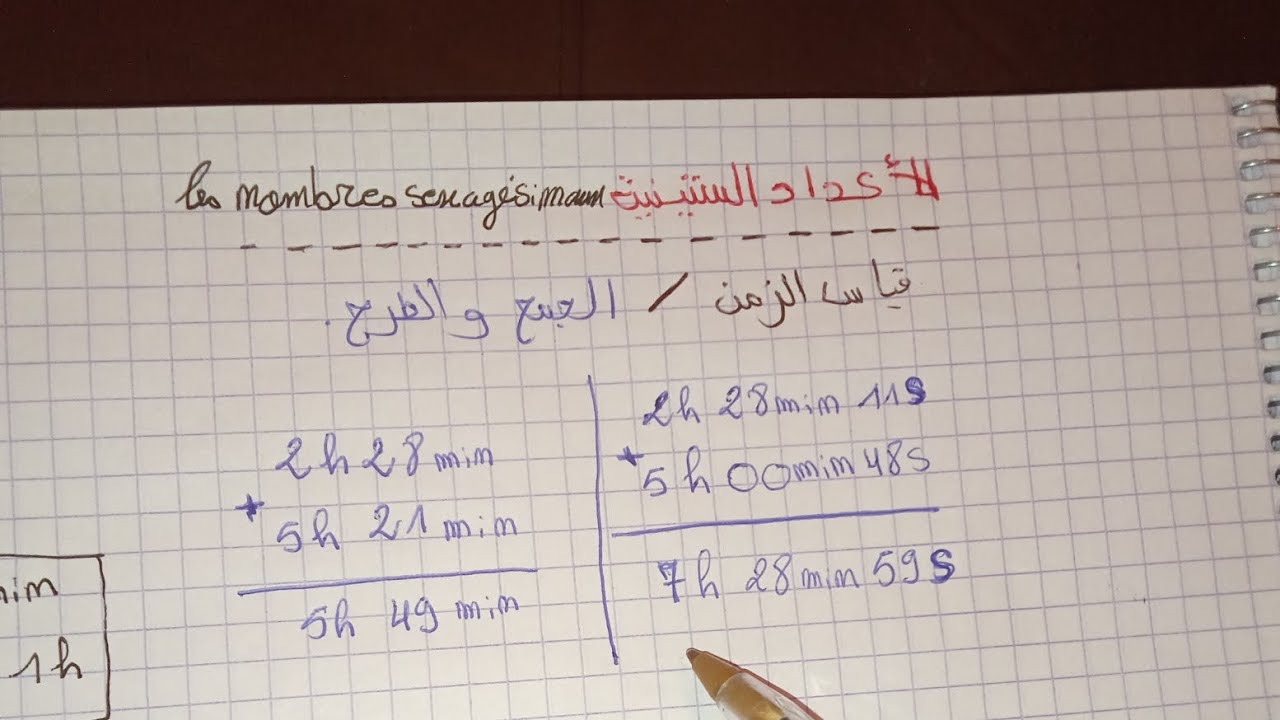 les nombres sexagésimaux الأعداد الستينية
قياس الزمن / الجمع والطرح.
2h 28min
+ 5h 21min
5h 49min
2h 28min 11s
+ 5h 00min 48s
7h 28min 59s
min
1h